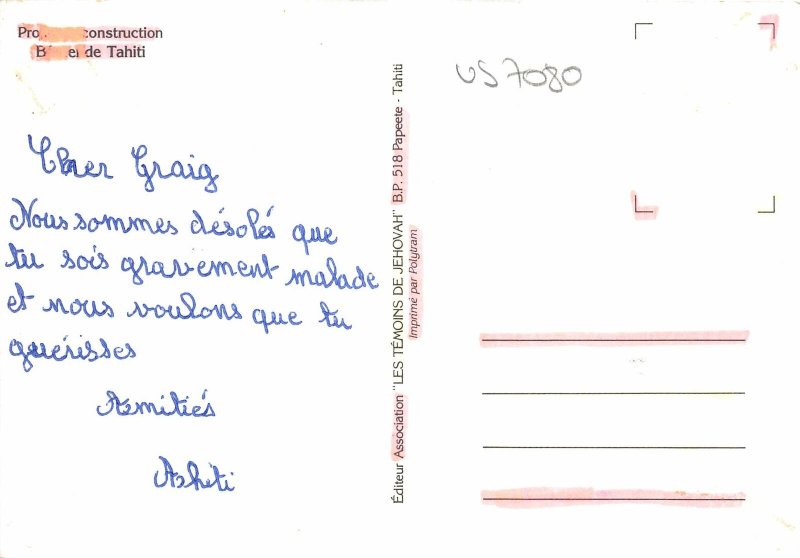 Pro construction
B el de Tahiti
US7080
Cher Graig
Nous sommes désolés que
tu sois gravement malade
et nous voulons que tu
guérisses
Asmitiés
Éditeur Association "LES TÉMOINS DE JEHOVAH" B.P. 518 Papeete - Tahiti
Imprimé par Polytram